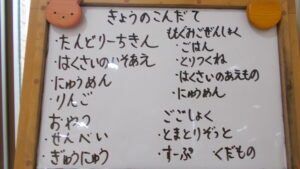 きょうのこんだて
・たんどりーちきん
・はくさいのいそあえ
・にゅうめん
・りんご
おやつ
・せんべい
・ぎゅうにゅう
ももぐみごぜんしょく
・ごはん
・とりつくね
・はくさいのあえもの
・にゅうめん
ごごしょく
・とまとりぞっと
・すーぷ くだもの